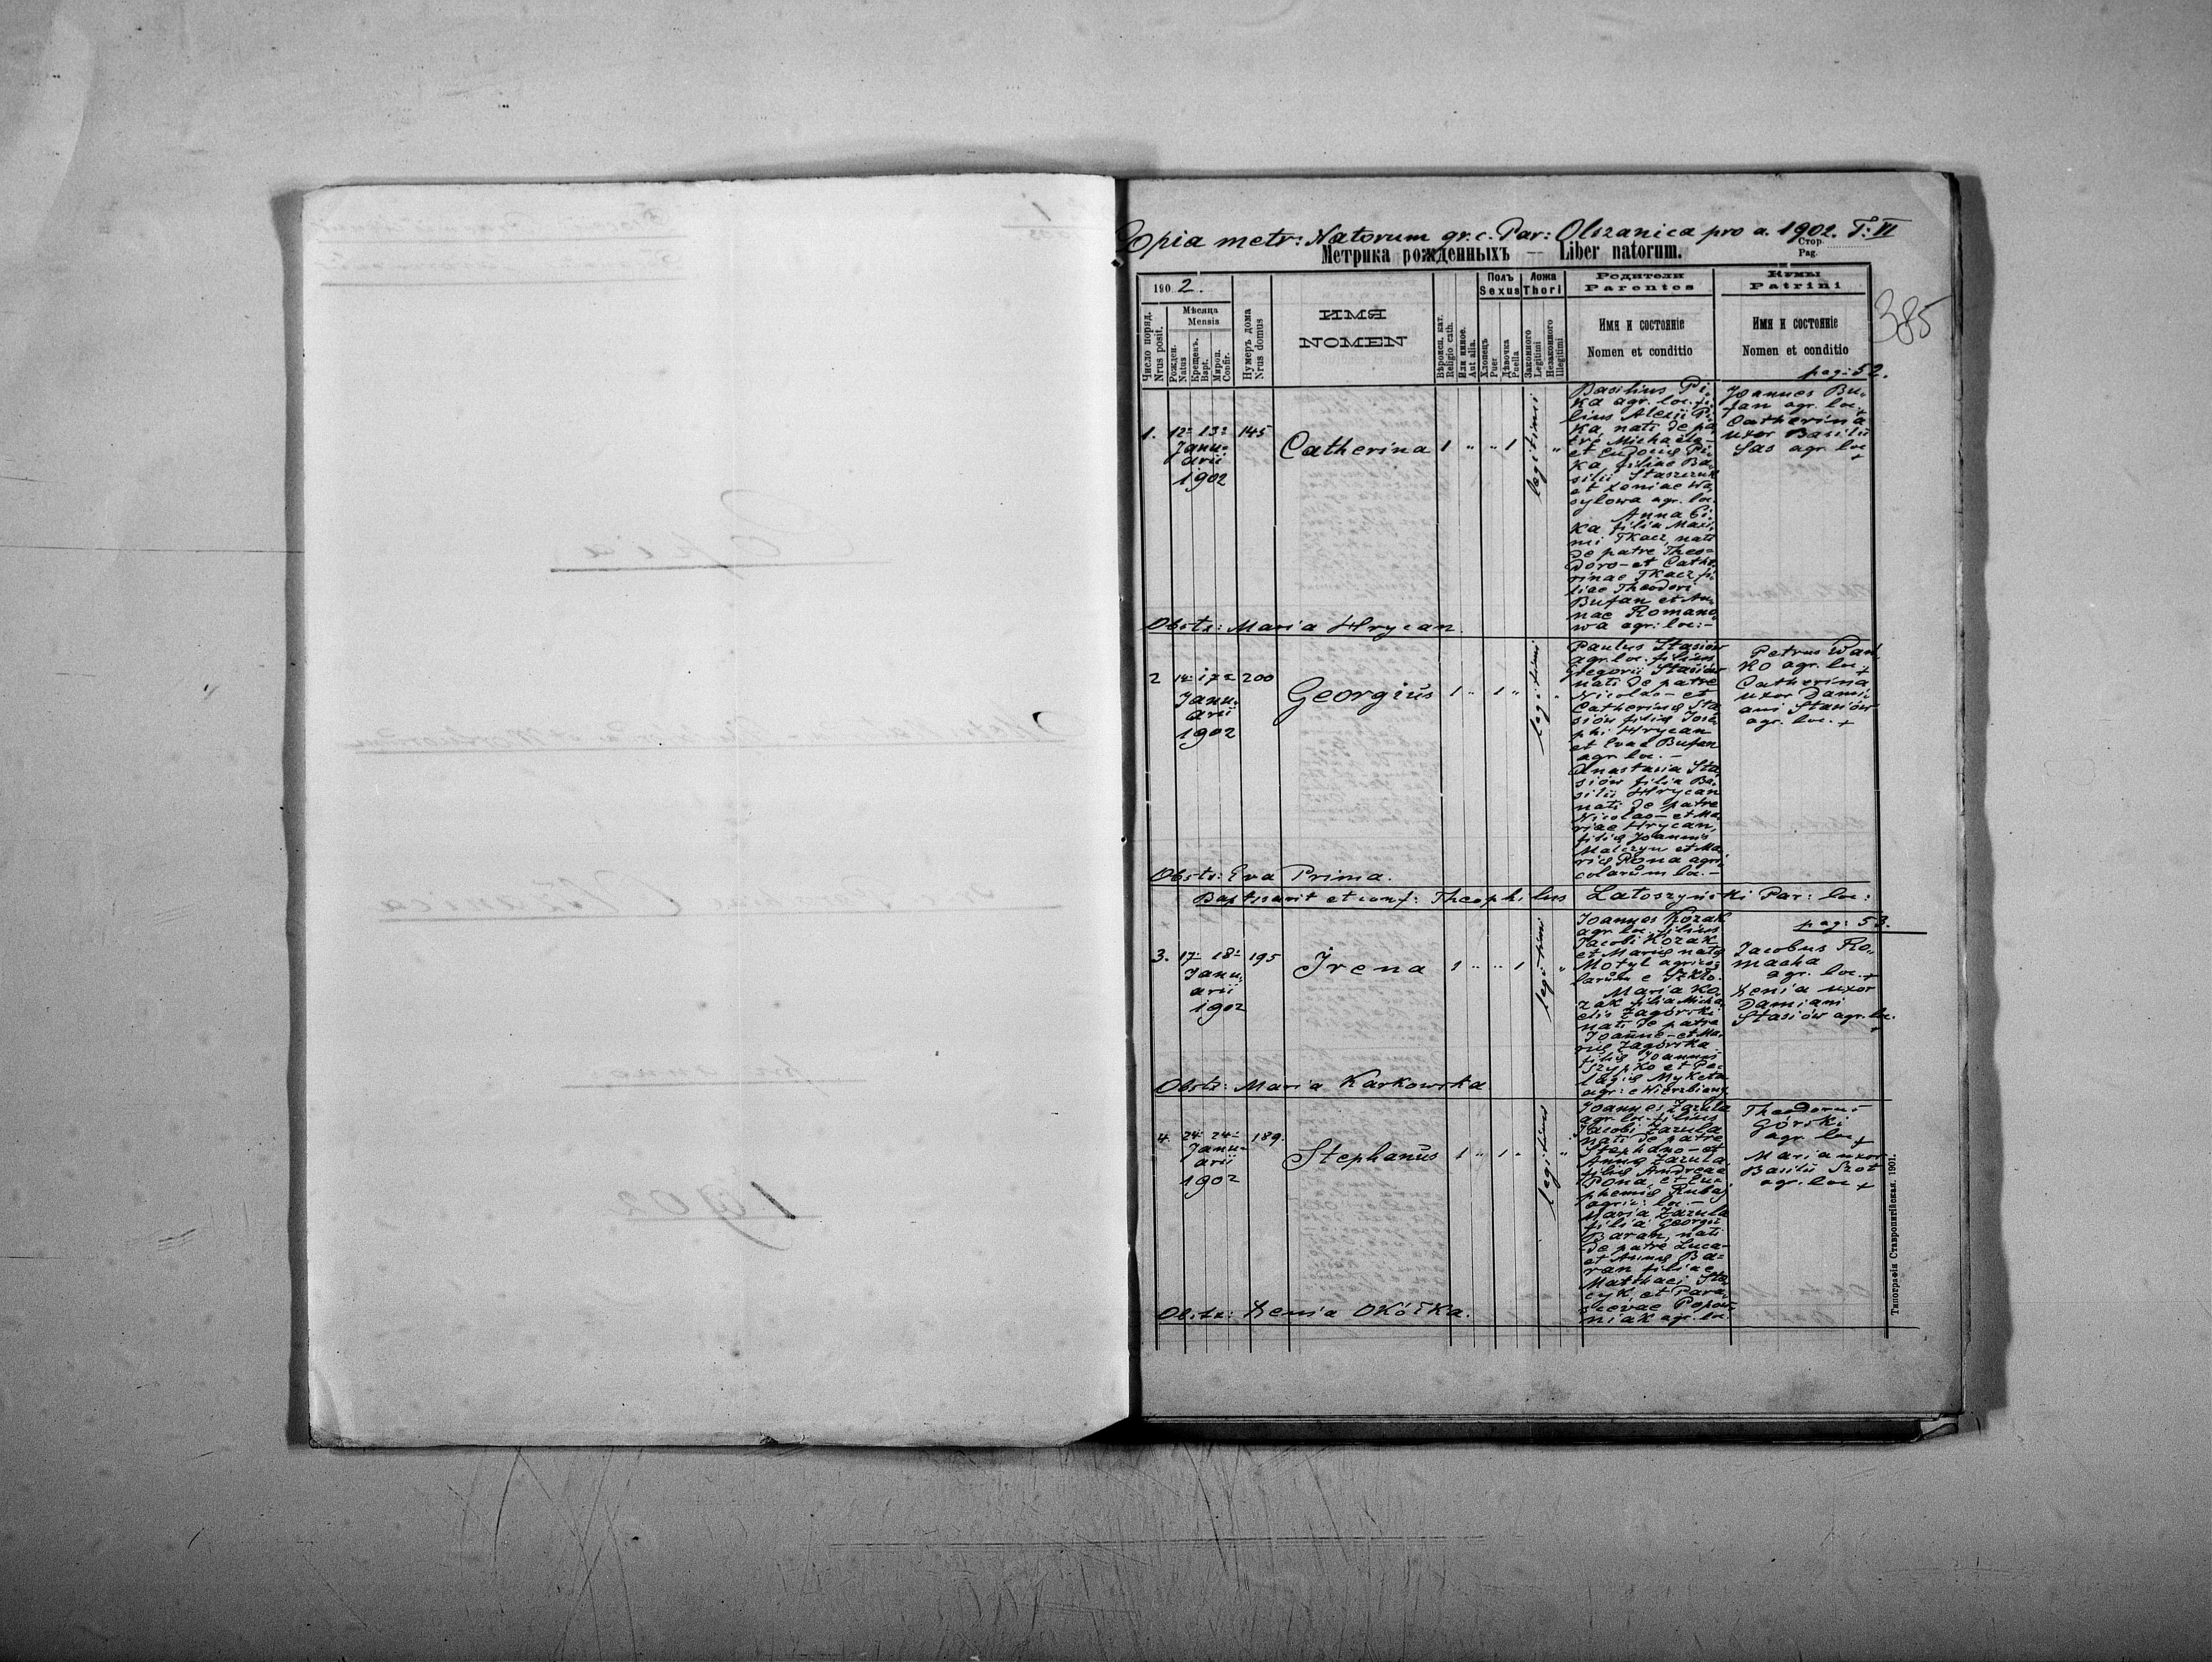 Copia metr: Natorum gr. c. Par: Olszanica pro a. 1902. T: VI
Метрика рожденныхъ — Liber natorum.
Стор.
Pag.
385
190 2.
Число поряд.
Nrus posit.
Мѣсяца
Mensis
Рожден.
Natus
Крещенъ.
Bapt.
Миров.
Confir.
Нумеръ дома
Nrus domus
ИМЯ
NOMEN
Вѣроисп. кат.
Religio cath.
Или инное.
Aut alia.
Полъ
Sexus
Хлопецъ
Puer
Дѣвочка
Puella
Ложа
Thori
Законного
Legitimi
Незаконного
Illegitimi
Родители
Parentes
Имя и состояніе
Nomen et conditio
Кумы
Patrini
Имя и состояніе
Nomen et conditio
pag: 52.
1. 12- 13- 145
Janu-
arii
1902
Catherina 1 " " 1 legitimi "
Basilius Pi-
ka agr. loc. fi-
lius Alexii Pi-
ka, nati de pa-
tre Michaele -
et Eudociae Pi-
ka, filiae Ba-
silii Staszczuk
et Xeniae Wa-
sylowa agr. loc.
Anna Pi-
ka filia Maxi-
mi Tkacz, nati
de patre Theo-
doro - et Cathe-
rinae Tkacz fi-
liae Theodori
Bufan et An-
nae Romano-
wa agr: loc: -
Joannes Bu-
fan agr. loc. +
Catherina
uxor Basilii
Sas agr. loc
+
Obstr: Maria Hrycan.
2 14- 17- 200
Janu-
arii
1902
Georgius 1 " 1 " legitimi "
Paulus Stasiów
agr. loc. filius
Gregorii Stasiów
nati de patre
Nicolao - et
Catherinae Sta-
siów filiae Jose-
phi Hrycan
et Evae Bufan
agr. loc. -
Anastasia Sta-
siów filia Ba-
silii Hrycan
nati de patre
Nicolao - et Ma-
riae Hrycan,
filiae Joannis
Malczyn et Ma-
riae Pona agri-
colarum loc. -
Petrus Wań-
ko agr. loc. +
Catherina
uxor Dami-
ani Stasiów
agr. loc. +
Obstr: Eva Prima.
Baptisavit et conf: Theophilus Latoszyński Par: loc:
pag: 53.
3. 17- 18- 195
Janu-
arii
1902
Irena 1 " " 1 legitimi "
Joannes Kozak
agr. loc. filius
Jacobi Kozak
et Mariae natae
Motyl agrico-
larum e Szkło.
Maria Ko-
zak filia Micha-
elis Zagórski
nati de patre
Joanne - et Ma-
riae Zagórska
filiae Joannis
Szypko et Pe-
lagiae Myketa
agr: e Wierzbiany.
Jacobus Ro-
macha
agr. loc. +
Xenia uxor
Damiani
Stasiów agr. loc.
+
Obstr: Maria Karkowska
4. 24- 24- 189.
Janu-
arii
1902
Stephanus 1 " 1 " legitimi "
Joannes Zazula
agr. loc. filius
Jacobi Zazula
nati de patre
Stephano - et
Annae Zazula
filiae Andreae
Pona, et Eu-
phemiae Rubaj
agric: loc. -
Maria Zazula
filia Georgii
Baran, nati
de patre Luca -
et Annae Ba-
ran filiae
Matthaei Sta-
cyk, et Para-
scevae Popow-
niak agr. loc.
Theodorus
Górski
agr. loc +
Maria uxor
Basilii Szot
agr. loc +
Obstr: Xenia Okółka.
Типографія Ставропигійская. 1901.